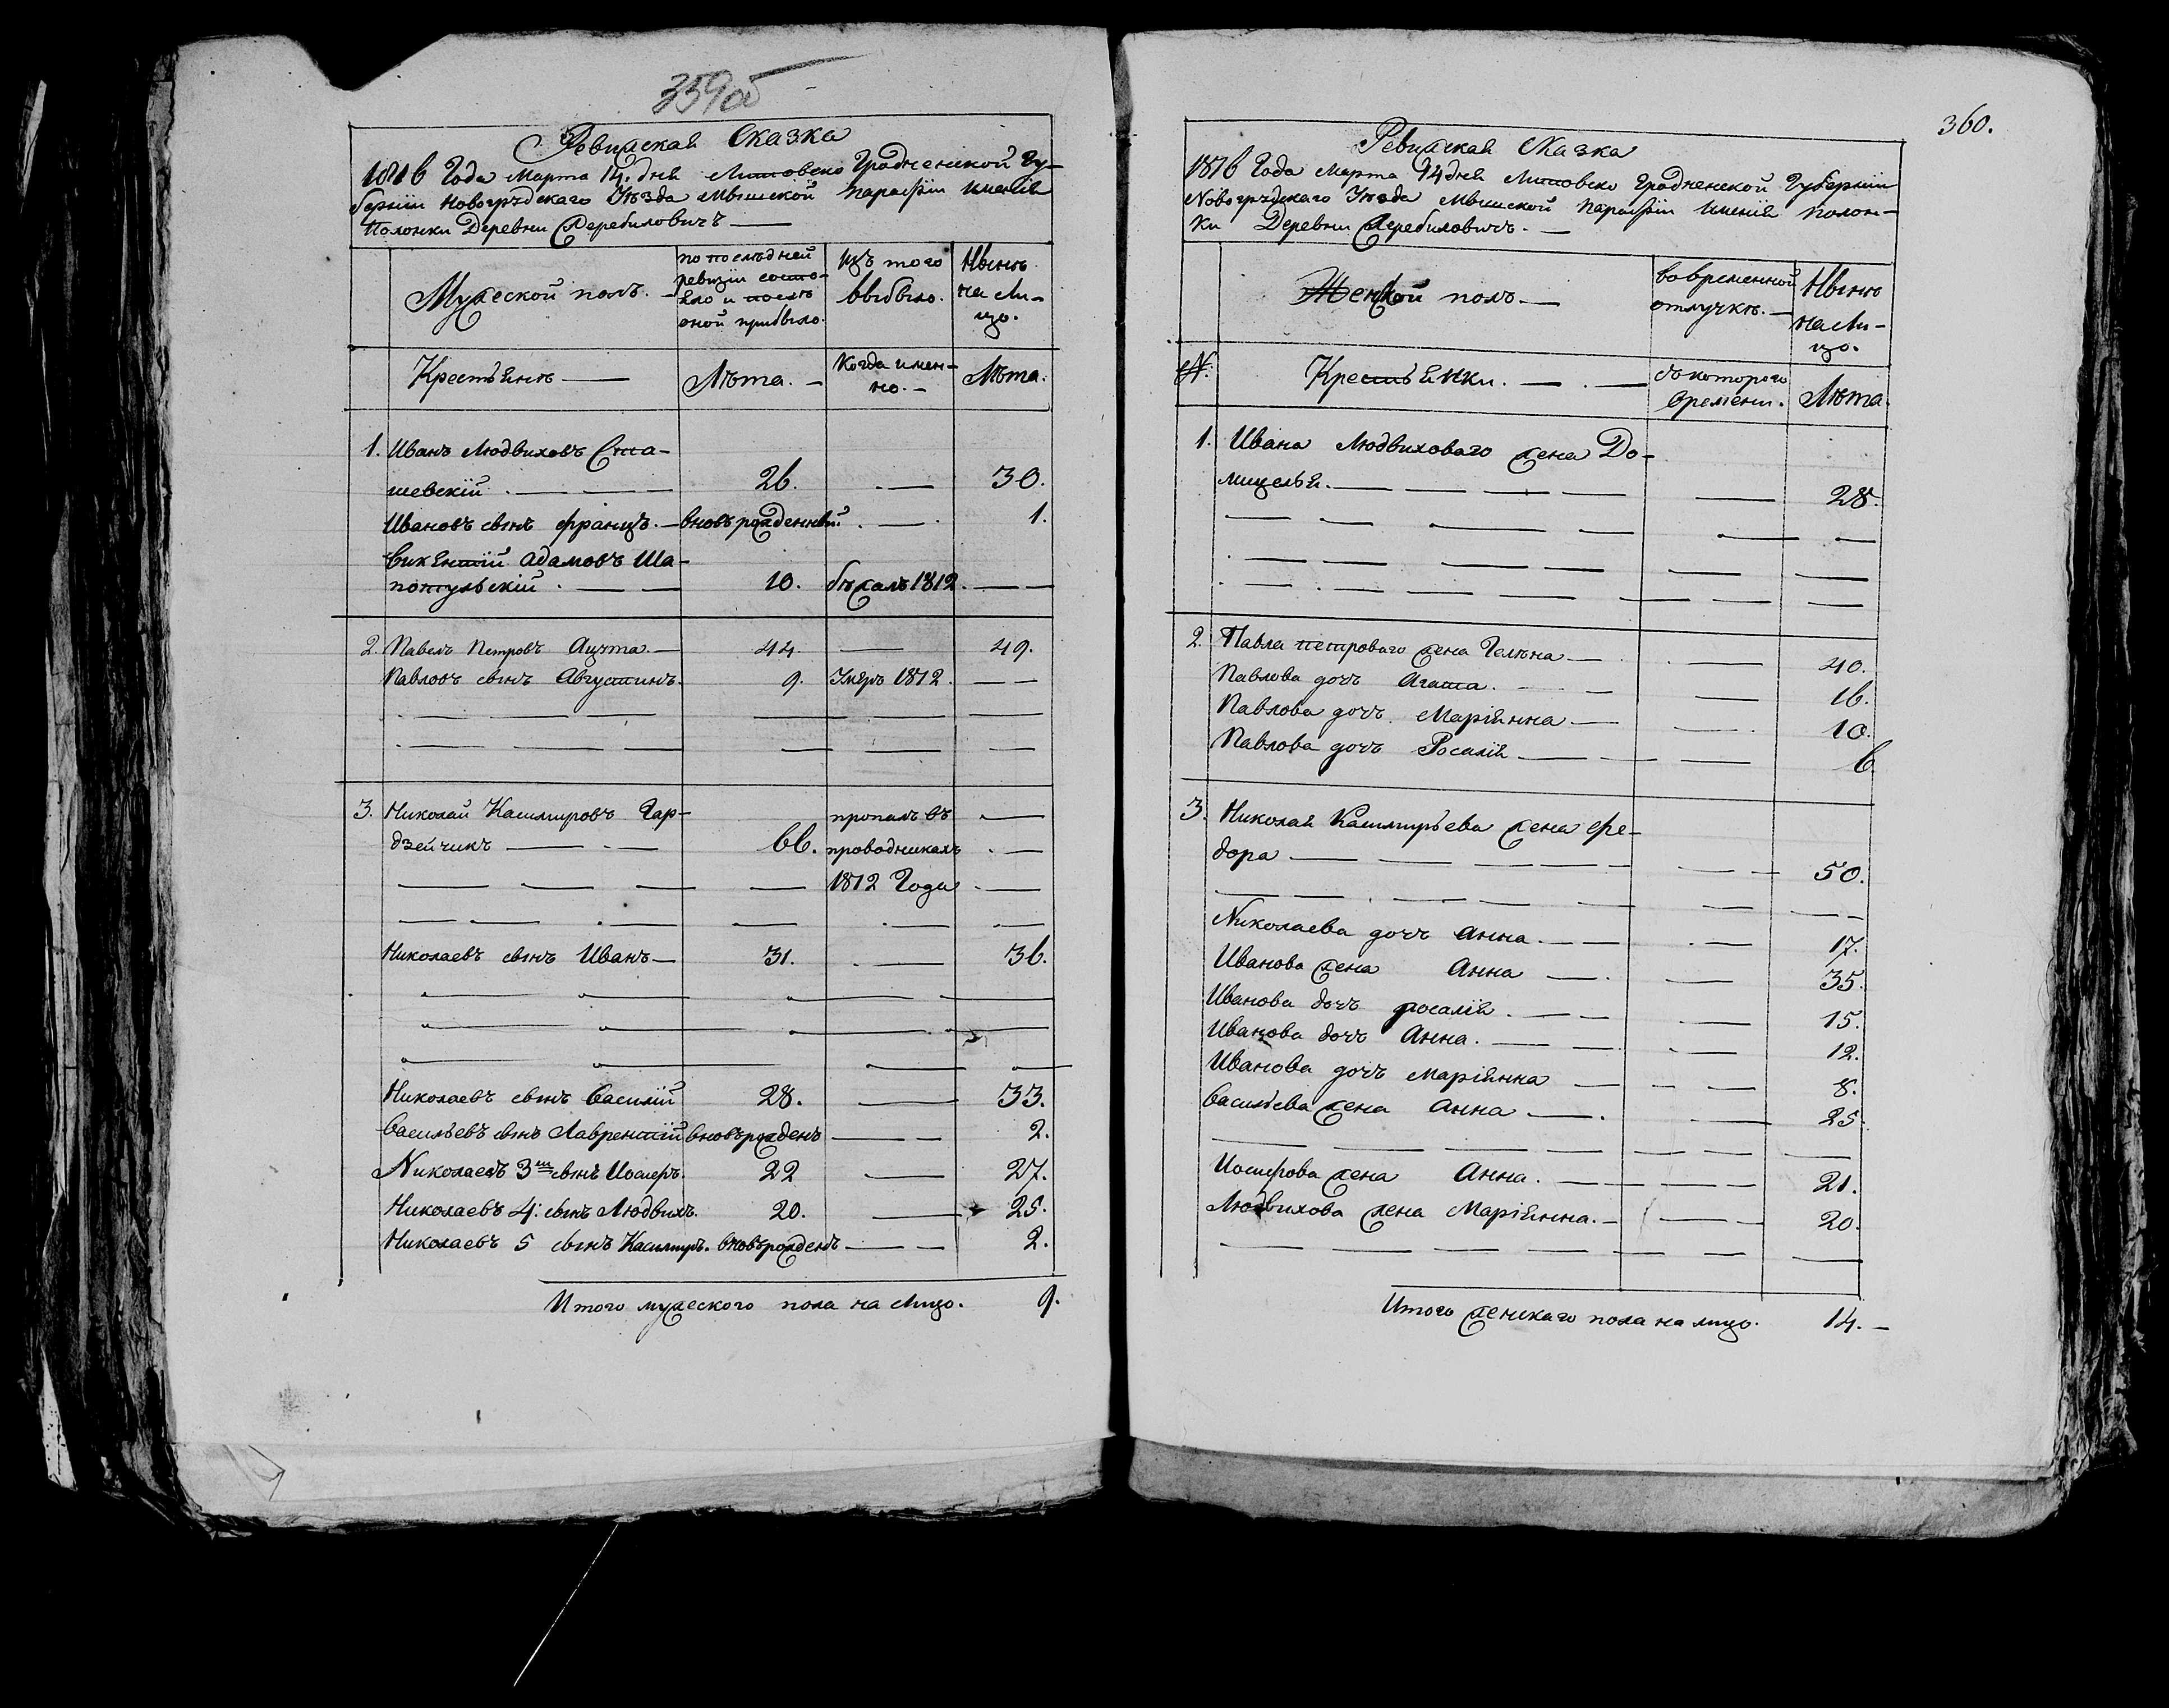 359об
Ревижская Сказка
1816 Года Марта 14. дня Литовско Гродненской Гу-
бернии Новогрудскаго Уѣзда Мышской парафіи Именія
Полонки Деревни Жеребиловичъ
Мужеской полъ.
по последней
ревизіи состо-
яло и послѣ
оной прибыло.
Изъ того
выбыло.
Нынѣ
на Ли-
цо.
Крестьянѣ
Лѣта.
Когда имен-
но.
Лѣта.
1. Иванъ Людвиховъ Ста-
шевскій 26. 30.
Ивановъ сынъ францъ. вновърожденный. 1.
Викентій Адамовъ Ша-
потульскій 10. бѣжалъ 1812.
2. Павелъ Петровъ Ацута. 44. 49.
Павловъ сынъ Августинъ. 9. Умеръ 1812.
3. Николай Касимировъ Гар- пропалъ въ
дзейчикъ 66. проводникахъ
1812 Года
Николаевъ сынъ Иванъ 31. 36.
Николаевъ сынъ Василій 28. 33.
Васильевъ сынъ Лаврентій вновърожденъ 2.
Николаевъ 3й сынъ Иосифъ. 22 27.
Николаевъ 4. сынъ Людвихъ. 20. 25.
Николаевъ 5 сынъ Касимиръ. вновърожденъ 2.
Итого мужеского пола на Лицо. 9.
360.
Ревижская Сказка
1816 Года Марта 14 дня Литовско Гродненской Губерніи
Новогрудскаго Уѣзда Мышской парафіи Именія Полон-
ки Деревни Жеребиловичъ.
Женской полъ.
вовременной
отлучкѣ.
Нынѣ
на Ли-
цо.
№.
Крестьянки.
съ которого
времени.
Лѣта.
1. Ивана Людвиховаго жена До-
мицелья. 28.
2. Павла петроваго жена Гелѣна 40.
Павлова дочъ Агата. 16.
Павлова дочъ Маріянна 10.
Павлова дочъ Росалія 6.
3. Николая Касимирьева жена Фе-
дора 50.
Николаева дочъ Анна. 17.
Иванова жена Анна 35.
Иванова дочъ росалія. 15.
Иванова дочъ Анна. 12.
Иванова дочъ Маріянна 8.
Васильева жена Анна 25.
Иосифова жена Анна. 21.
Людвихова жена Маріянна. 20.
Итого женскаго пола на лицо. 14.